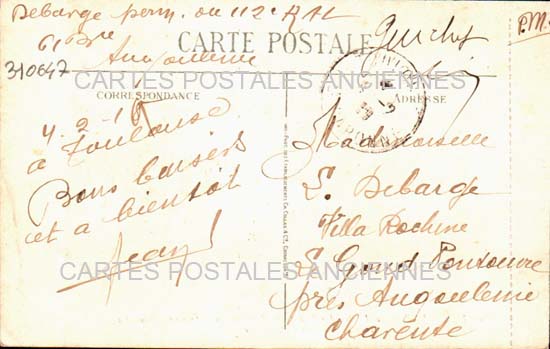 Debarge perm. au 112e RAL
61 Bie
Angoulême
310647
CARTE POSTALE
P.M.
CARTES POSTALES ANCIENNES
CORRESPONDANCE
ADRESSE
4-2-18
à Toulouse
Bons baisers
et a bientôt
Jean
Mademoiselle
L. Debarge
Villa Rochine
L. Gond Pontouvre
près Angouleme
Charente
CARTES POSTALES ANCIENNES